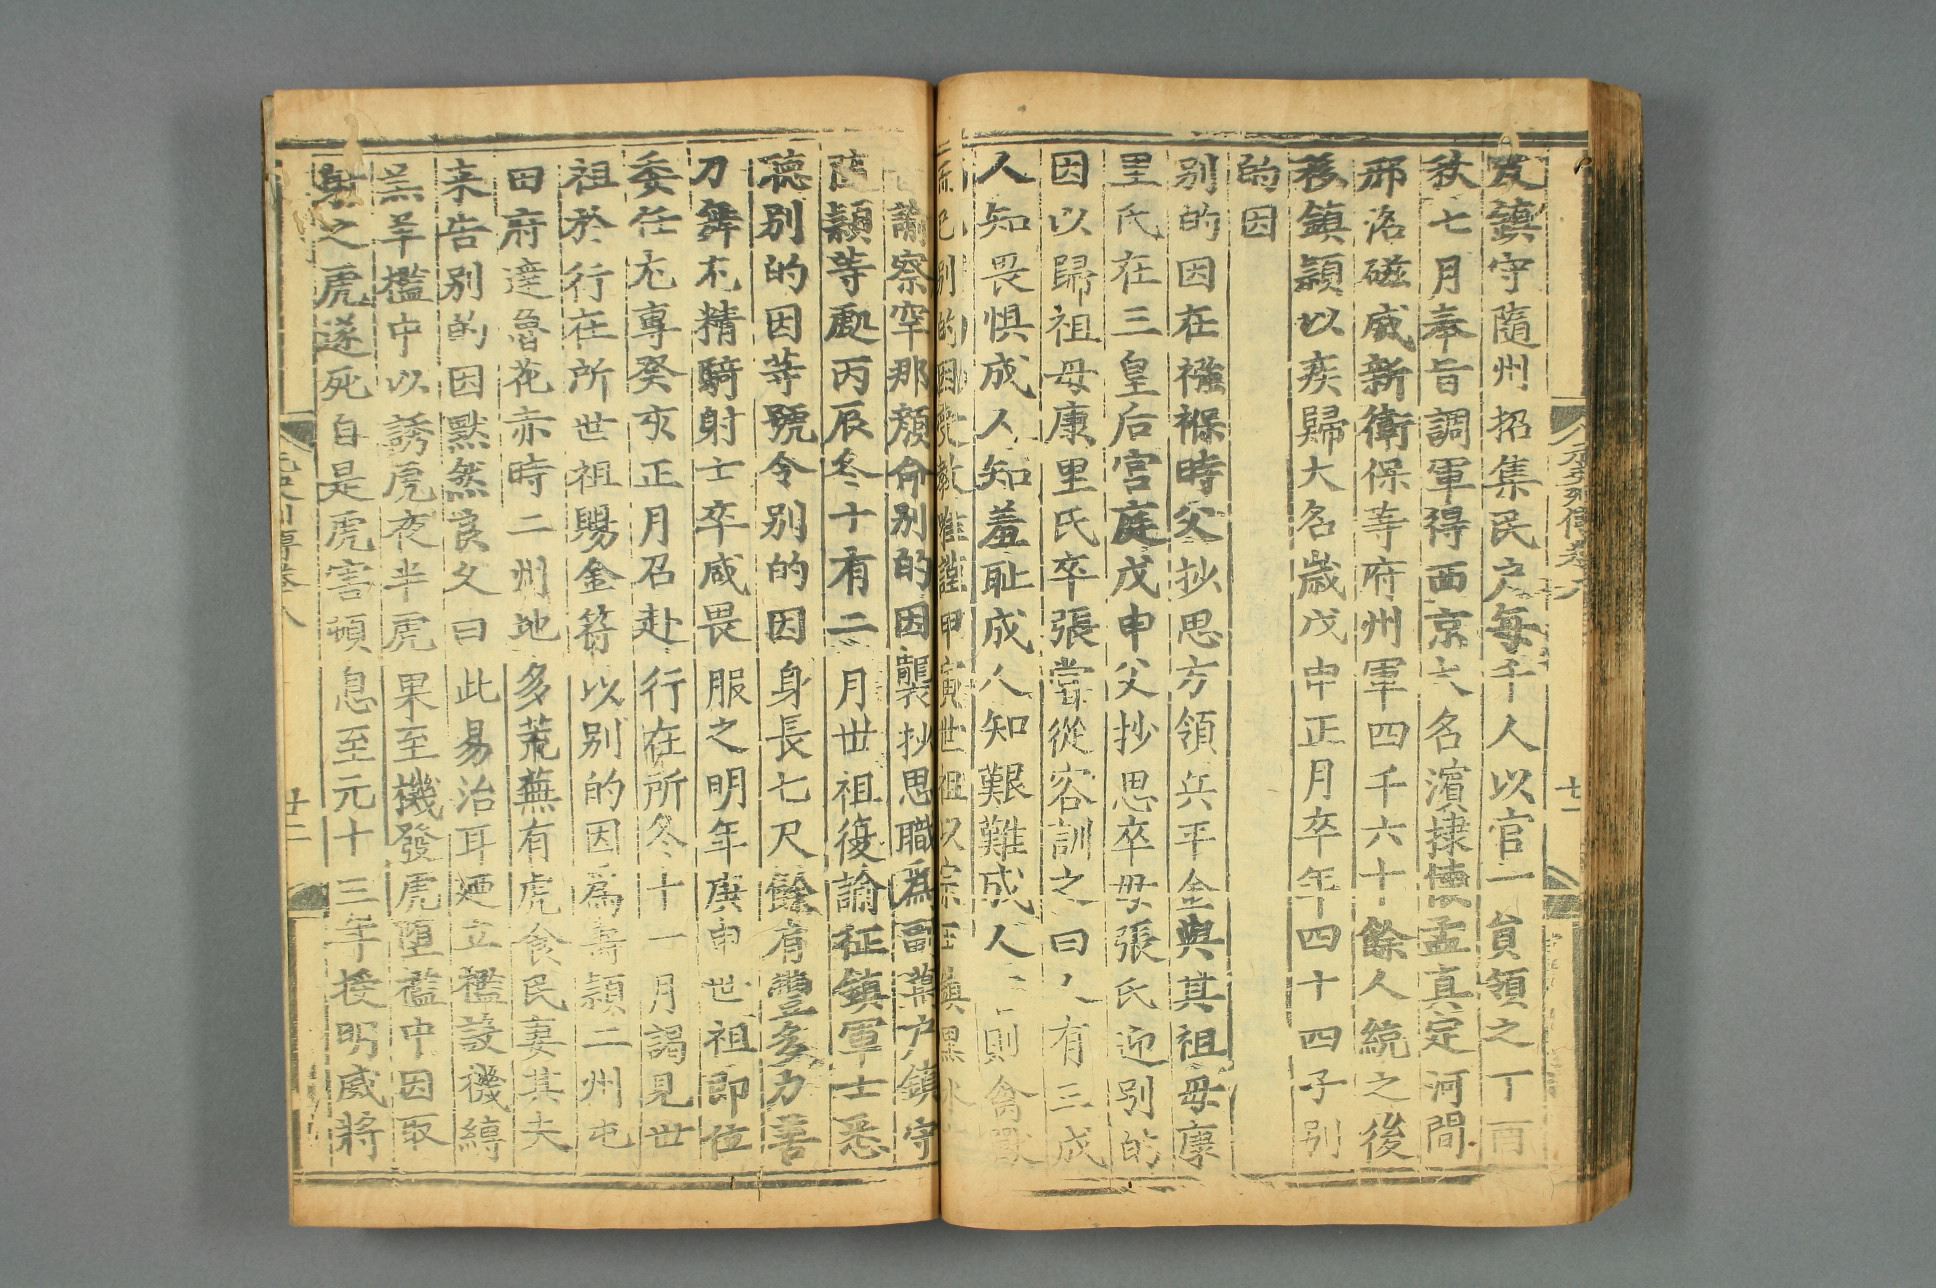 及鎮守隨州招集民户每千人以官一員領之丁酉
秋七月奉旨調軍得西京大名濱棣懷孟真定河間
邢洺磁威新衛保等府州軍四千六十餘人統之後
移鎮潁以疾歸大名歲戊申正月卒年四十四子别
的因
别的因在襁褓時父抄思方領兵平金與其祖母康
里氏在三皇后宫庭戊申父抄思卒母張氏迎别的
因以歸祖母康里氏卒張嘗從容訓之曰人有三成
人知畏惧成人知羞耻成人知艱難成人否則禽獸
而已别的因受教唯謹甲寅世祖以宗王鎮黑水
諭察罕那顔俞别的因襲抄思職為副萬户鎮守
隨潁等處丙辰冬十有二月世祖復諭征鎮軍士悉
聽别的因等號令别的因身長七尺餘肩豐多力善
刀舞尤精騎射士卒咸畏服之明年庚申世祖即位
委任尤專癸亥正月召赴行在所冬十一月謁見世
祖於行在所世祖賜金符以别的因爲壽潁二州屯
田府達魯花赤時二州地多荒蕪有虎食民妻其夫
来告别的因默然良久曰此易治耳廼立檻設機縛
羔羊檻中以誘虎夜半虎果至機發虎墮檻中因取
射之虎遂死自是虎害頓息至元十三年授明威將
元史列傳卷八
廿二